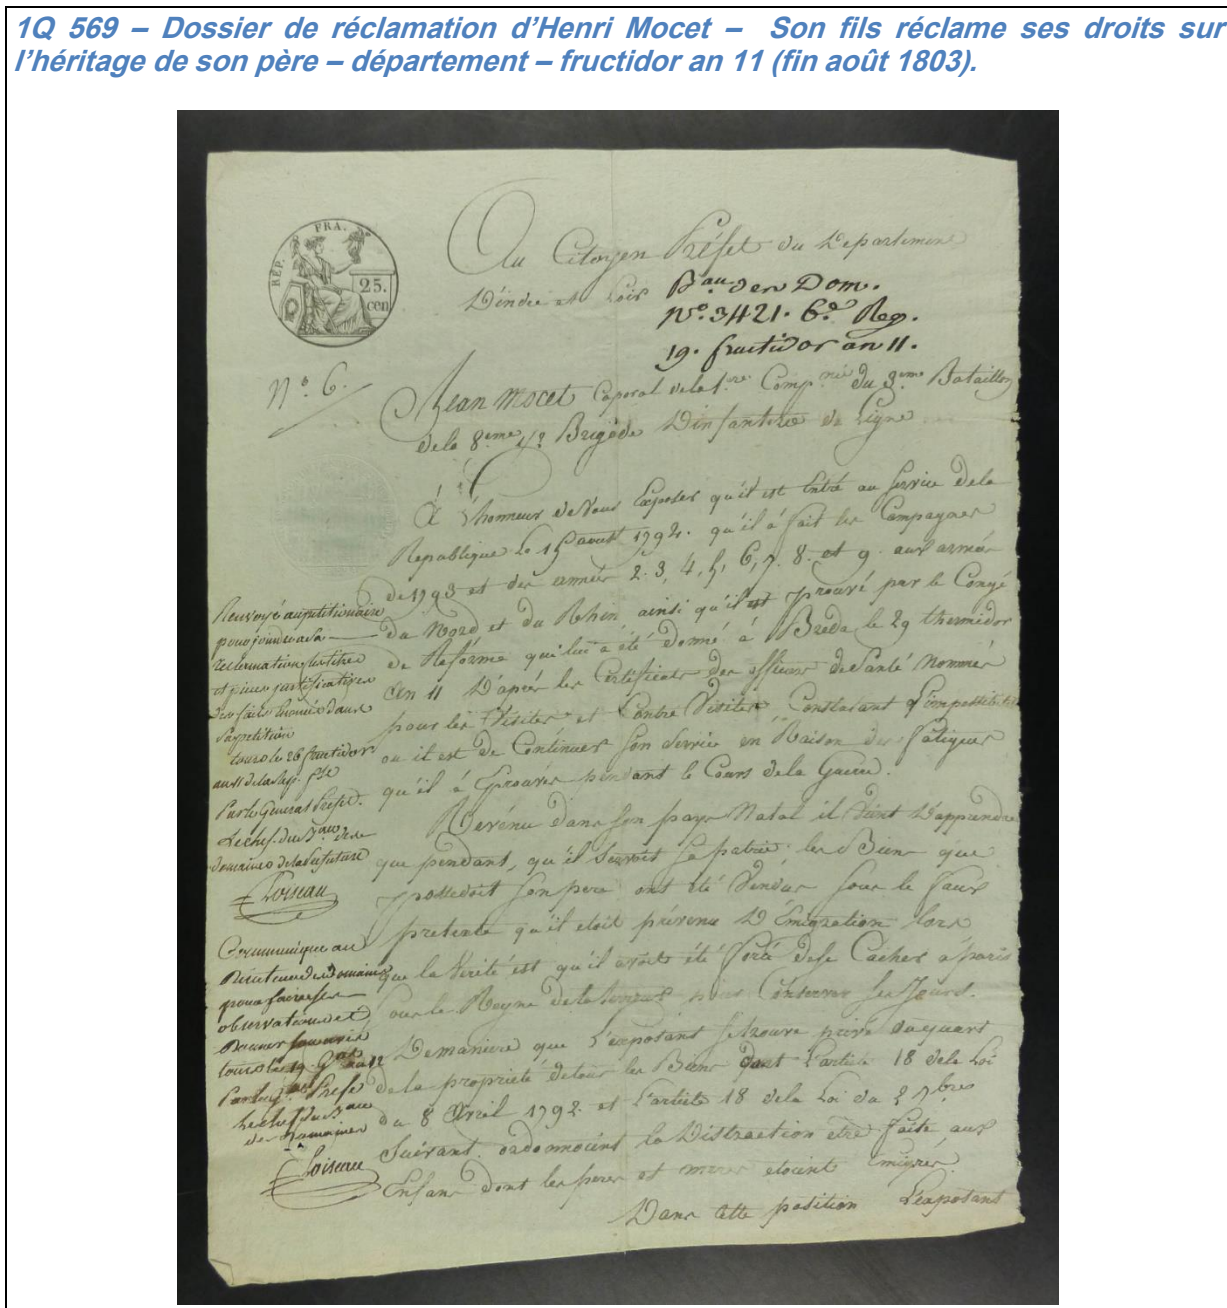 1Q 569 – Dossier de réclamation d'Henri Mocet – Son fils réclame ses droits sur
l'héritage de son père – département – fructidor an 11 (fin août 1803).
RÉP. FRA.
25.
cen
Au Citoyen Préfet du Departement
D'indre et Loir
Bau des Dom.
No. 3421. 6e Reg.
19. fructidor an 11.
No. 6.
Jean Mocet Caporal de la 1ere Compnie du 3eme Bataillon
de la 8eme 1/2 Brigade D'infanterie de Ligne
A L'honneur de Vous Exposer qu'il est Entré au Service de la
Republique le 15 aout 1792. qu'il à fait les Campagnes
de 1793 et des années 2. 3, 4, 5, 6, 7. 8. et 9. aux armées
du Nord et du Rhin, ainsi qu'il est prouvé par le Congé
de Reforme qui lui a été donné à Breda le 29 thermidor
An 11 D'après les Certificats des officiers de Santé Nommés
pour les Visites et Contre Visites Constatant L'impossibilité
ou il est de Continuer Son Service en Raison des fatigues
qu'il à Eprouvés pendant le Cours de la Guerre.
Revénu dans Son pays Natal il Vient D'apprendre
que pendant, qu'il Servoit Sa patrie les Biens que
possedoit Son pere ont été Vendus Sous le faux
pretexte qu'il etoit prévenu D'Emigration lors
que la Vérité est qu'il avoit été forcé de Se Cacher à paris
Sous le Regne de la terreur pour Conserver Ses Jours.
De maniere que L'exposant Se trouve privé du quart
de la propriété de tous les Biens dont L'article 18 de la Loi
du 8 Avril 1792. et L'article 18 de la Loi du 2 7bres
Suivant. ordonnoient la Distraction etre faite aux
Enfans dont les peres et meres etoient Emigrés.
Dans cette position L'exposant
Renvoyé au petitionnaire
pour joindre a sa
reclamation les titres
et pieces justificatives
des faits enoncés dans
Sa petition
tours le 26 fructidor
an 11 de la Rep. fse
Par le General Prefet.
Le chef du Bau des
domaines de la Prefecture
Loiseau
Communiqué au
Directeur des Domaines
pour faire ses
observations et
Donner Son avis
tours le 19
Le chef du Bau
des Domaines
Loiseau